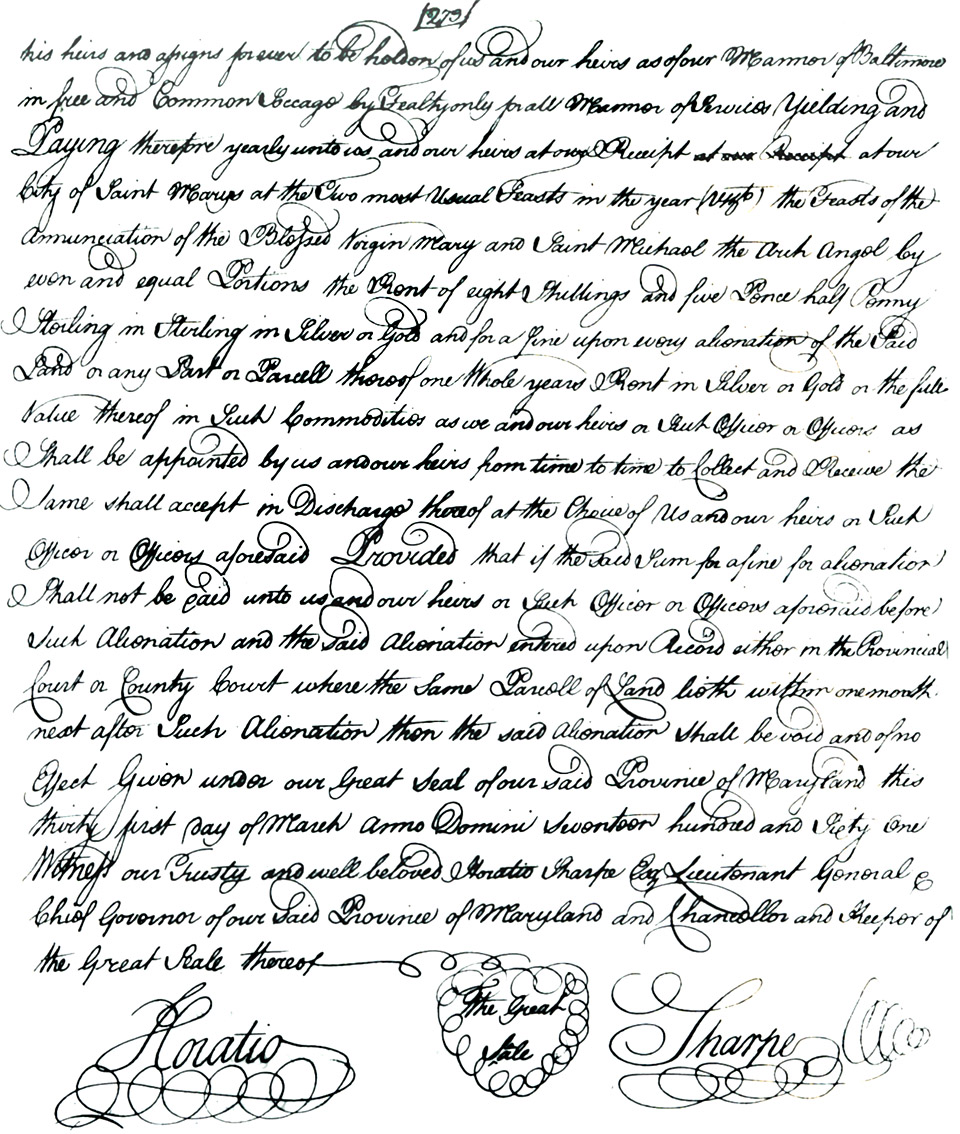 [279]
his heirs and assigns forever to be holden of us and our heirs as of our Mannor of Baltimore
in free and Common Soccage by Fealty only for all Mannor of Services Yielding and
Paying therefore yearly unto us and our heirs at our Receipt at our Receipt at our
City of Saint Marys at the Two most Usual Feasts in the year (Vizt) the Feasts of the
Annunciation of the Blessed Virgin Mary and Saint Michael the Arch Angel by
even and equal Portions the Rent of eight Shillings and five Pence half Penny
Sterling in Sterling in Silver or Gold and for a fine upon every alienation of the Said
Land or any Part or Parcell thereof one Whole years Rent in Silver or Gold or the full
Value thereof in Such Commodities as we and our heirs or Such Officer or Officers as
Shall be appointed by us and our heirs from time to time to Collect and Receive the
Same shall accept in Discharge thereof at the Choice of Us and our heirs or Such
Officer or Officers aforesaid Provided that if the Said Sum for a fine for alienation
Shall not be paid unto us and our heirs or Such Officer or Officers aforesaid before
Such Alienation and the Said Alienation entered upon Record either in the Provincial
Court or County Court where the Same Parcell of Land lieth within one month
next after Such Alienation then the said Alienation shall be void and of no
Effect Given under our Great Seal of our said Province of Maryland this
thirty first day of March Anno Domini Seventeen hundred and Sixty One
Witness our Trusty and well beloved Horatio Sharpe Esq Lieutenant General &
Chief Governor of our Said Province of Maryland and Chancellor and Keeper of
the Great Seale thereof
Horatio The Great Sharpe
Seale